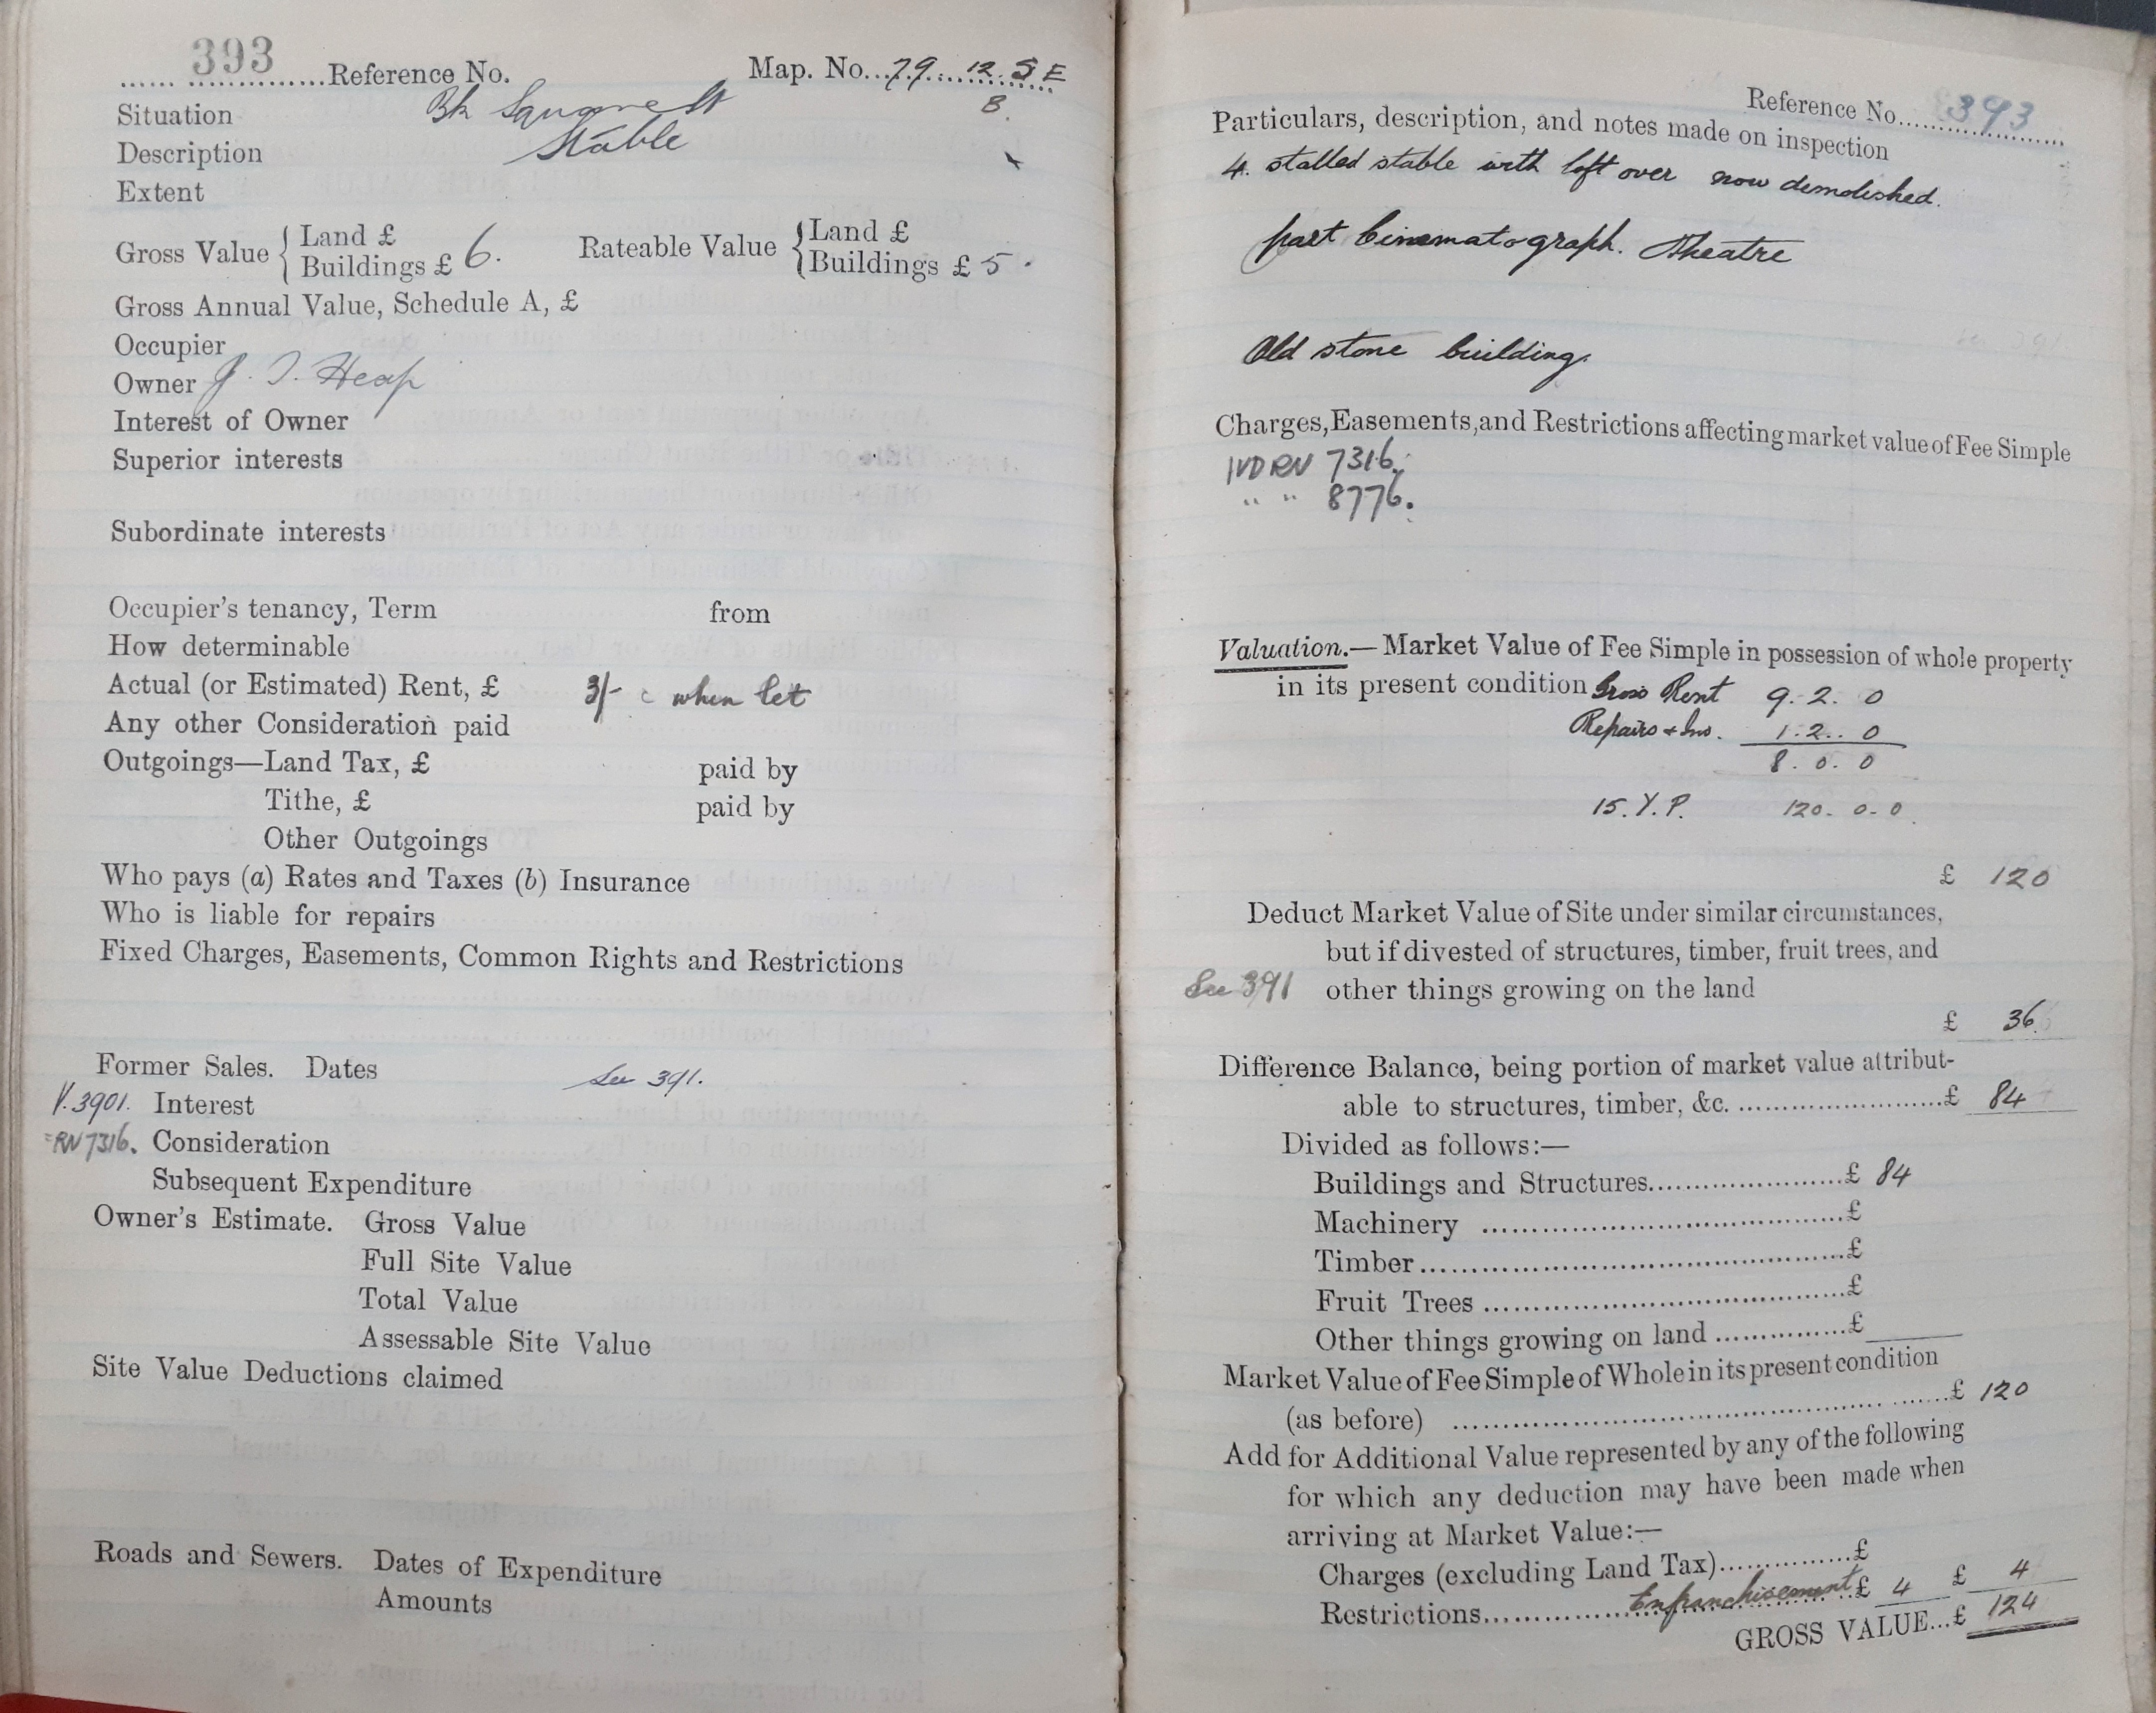 393 Reference No. Map. No. 79. 12. SE
8.
Situation Bk Square St
Description Stable
Extent
Gross Value { Land £ Rateable Value { Land £
Buildings £ 6. Buildings £ 5.
Gross Annual Value, Schedule A, £
Occupier
Owner J. T. Heap
Interest of Owner
Superior interests
Subordinate interests
Occupier's tenancy, Term from
How determinable
Actual (or Estimated) Rent, £ 3/- when let
Any other Consideration paid
Outgoings—Land Tax, £ paid by
Tithe, £ paid by
Other Outgoings
Who pays (a) Rates and Taxes (b) Insurance
Who is liable for repairs
Fixed Charges, Easements, Common Rights and Restrictions
Former Sales. Dates See 391.
V.3901. Interest
=RN 7316. Consideration
Subsequent Expenditure
Owner's Estimate. Gross Value
Full Site Value
Total Value
Assessable Site Value
Site Value Deductions claimed
Roads and Sewers. Dates of Expenditure
Amounts
Reference No. 393
Particulars, description, and notes made on inspection
4. stalled stable with loft over now demolished.
part Cinematograph. Theatre
Old stone building.
Charges, Easements, and Restrictions affecting market value of Fee Simple
IVD RN 7316.
" " 8776.
Valuation.— Market Value of Fee Simple in possession of whole property
in its present condition Gross Rent 9. 2. 0
Repairs + Ins. 1. 2. 0
8. 0. 0
15. Y. P. 120. 0. 0.
£ 120
Deduct Market Value of Site under similar circumstances,
but if divested of structures, timber, fruit trees, and
See 391 other things growing on the land
£ 36
Difference Balance, being portion of market value attribut-
able to structures, timber, &c. ........................£ 84
Divided as follows:—
Buildings and Structures......................£ 84
Machinery ......................................£
Timber.............................................£
Fruit Trees ......................................£
Other things growing on land ...............£
Market Value of Fee Simple of Whole in its present condition
(as before) ................................................£ 120
Add for Additional Value represented by any of the following
for which any deduction may have been made when
arriving at Market Value:—
Charges (excluding Land Tax)...............£
Restrictions...............Enfranchisement £ 4 £ 4
GROSS VALUE...£ 124